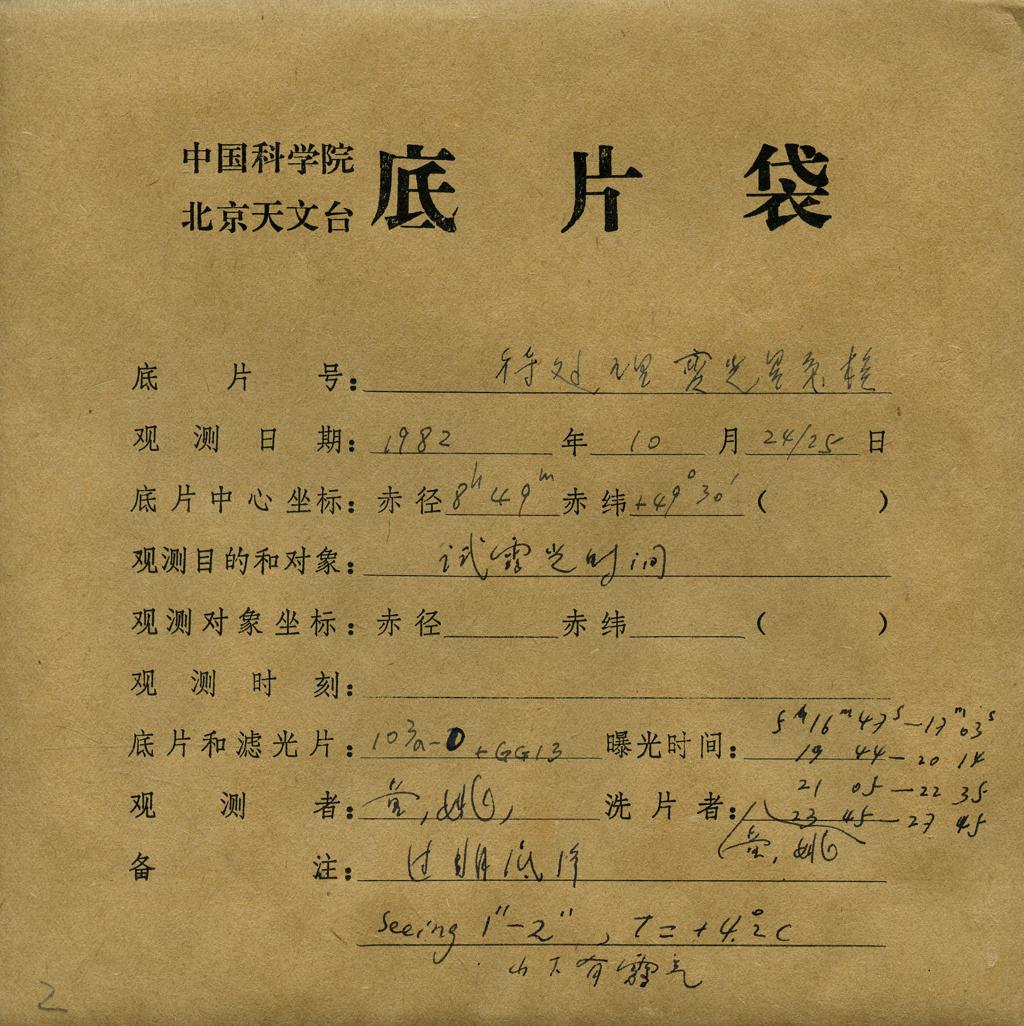 中国科学院
北京天文台
底片袋
底片号： 待处理变光星
观测日期：1982年10月24/25日
底片中心坐标：赤径8h49m赤纬+49°30′（ ）
观测目的和对象：试露光时间
观测对象坐标：赤径 赤纬 （ ）
观测时刻：
底片和滤光片：103a-D+GG13 曝光时间：5h16m47s—17m03s
19 44—20 14
21 05—22 35
23 45—27 45
观测者： 姚, 洗片者： 姚
备注：过期底片
Seeing 1″-2″, T=+4.°2C
山下有雾气
2